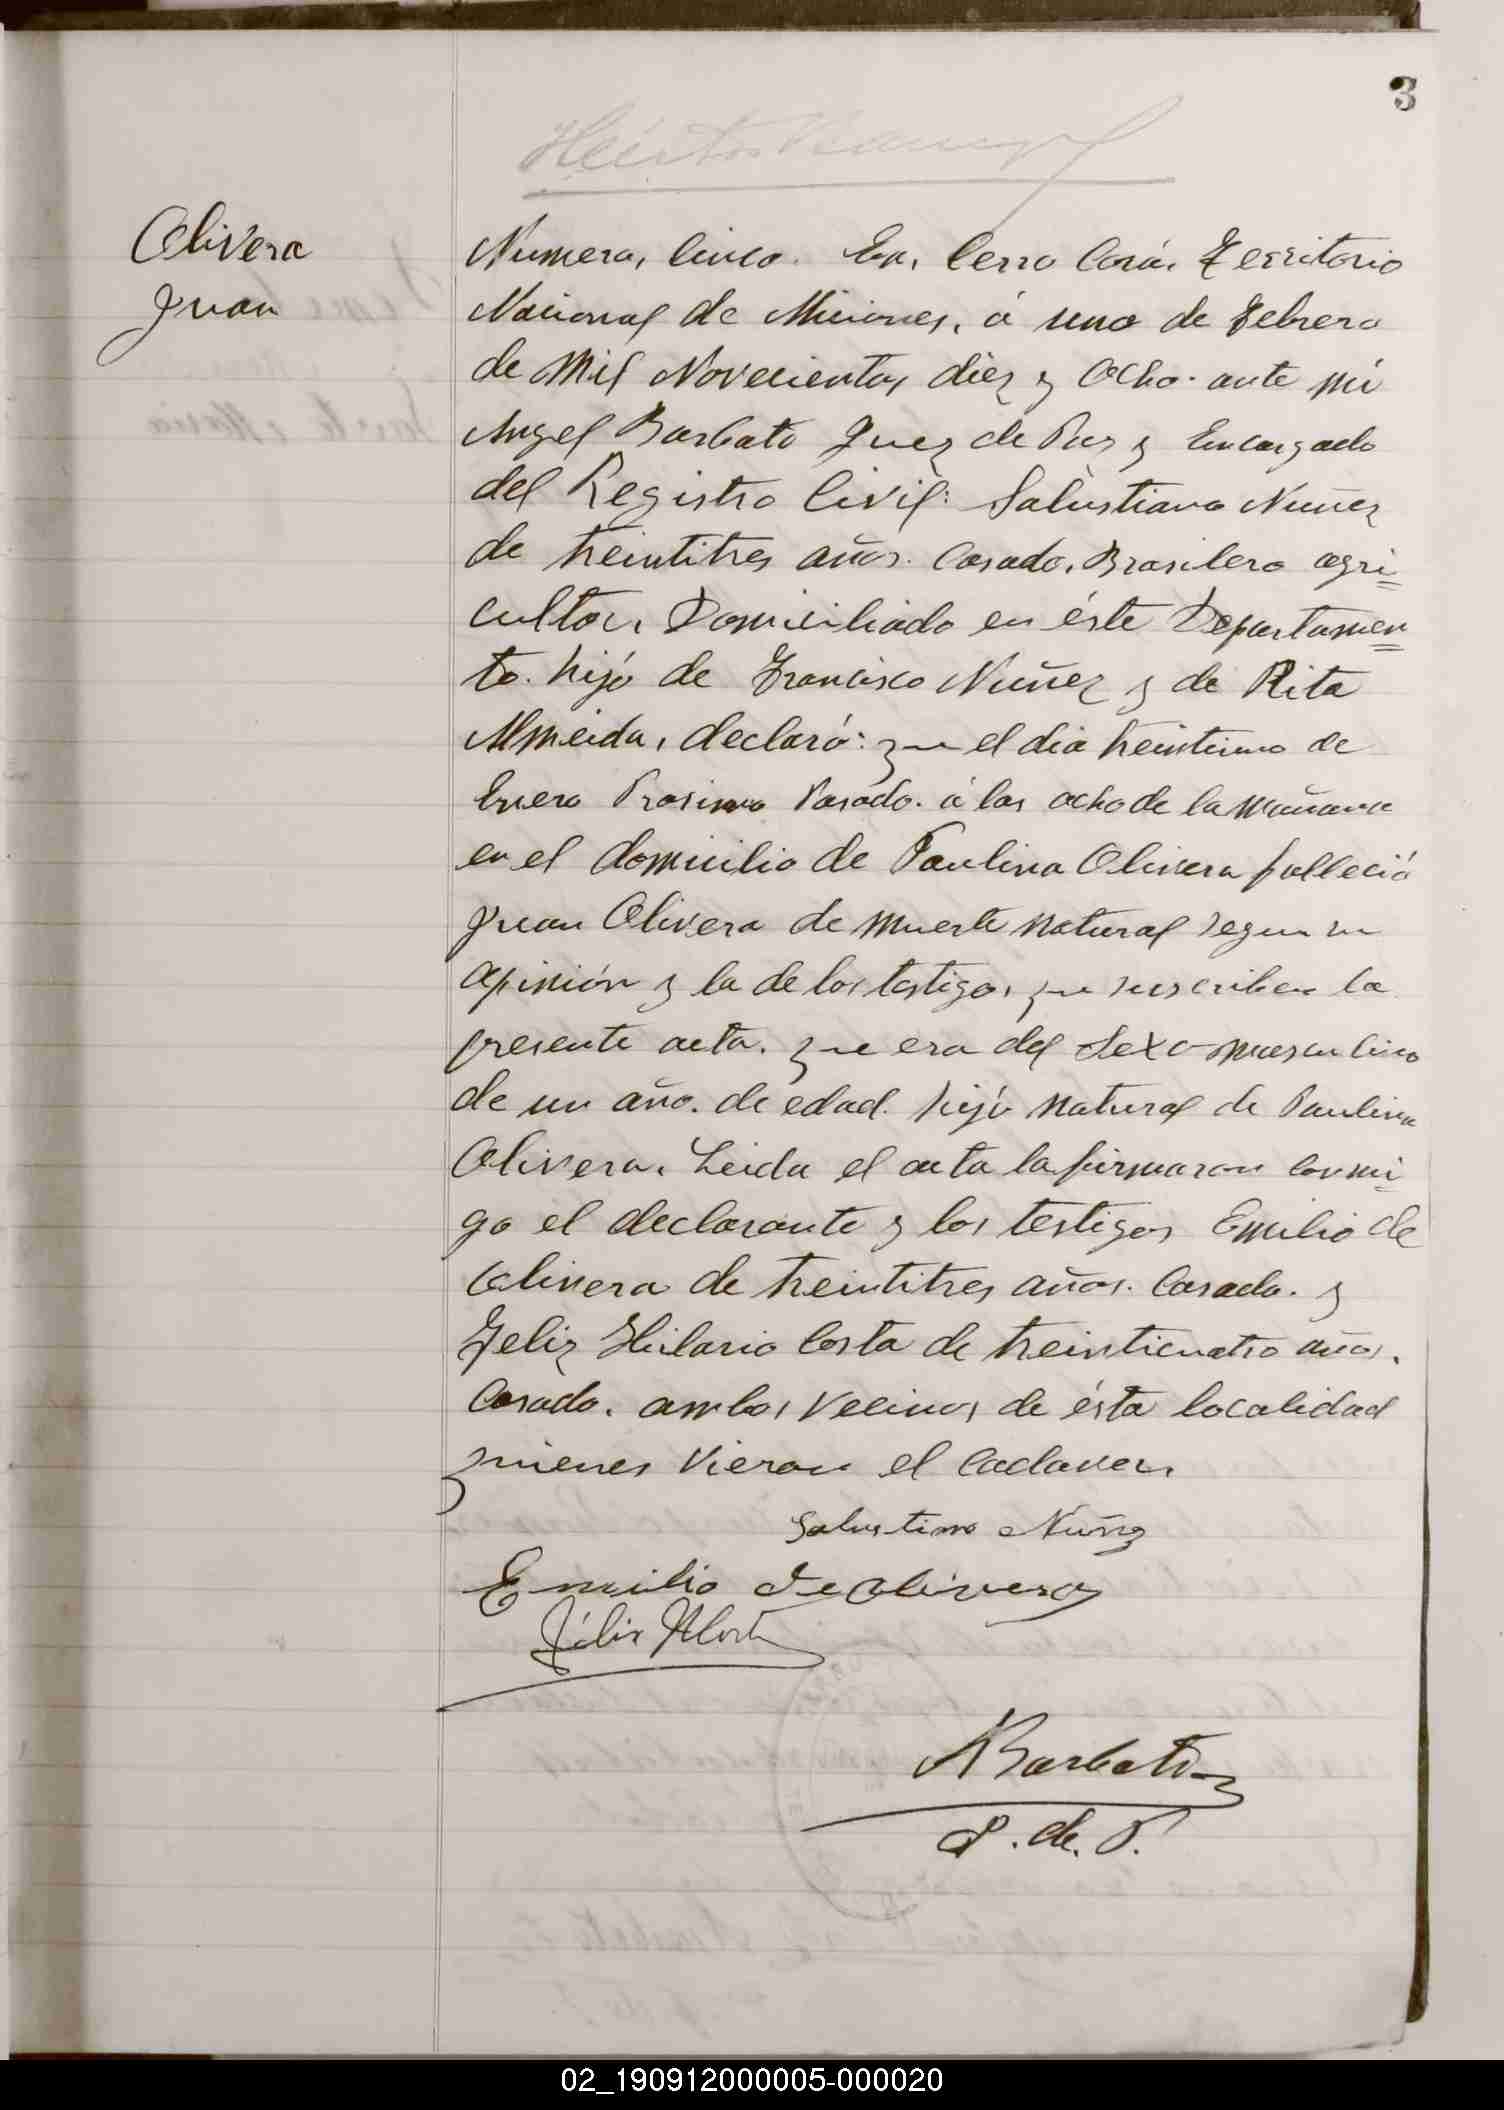 3
Olivera
Juan
Numero, Cinco. En, Cerro Corá, Territorio
Nacional de Misiones, á uno de Febrero
de Mil Novecientos diez y Ocho. ante mi
Angel Barbato Juez de Paz y Encargado
del Registro Civil: Salustiano Nuñez
de treintitres años. Casado, Brasilero agri=
cultor, Domiciliado en éste Departamen=
to. hijo de Francisco Nuñez y de Rita
Almeida, declaró: que el dia treintiuno de
Enero Prosimo Pasado. á las ocho de la mañana
en el domicilio de Paulina Olivera falleció
Juan Olivera de muerte natural segun su
opinión y la de los testigos que suscriben la
presente acta. que era del Sexo masculino
de un año. de edad. hijo natural de Paulina
Olivera. Leida el acta la firmaron conmi=
go el declarante y los testigos Emilio de
Olivera de treintitres años. Casado. y
Feliz Hilario Costa de treinticuatro años.
Casado. ambos vecinos de ésta localidad
quienes vieron el Cadaver.
Salustiano Núñez
Emilio de Olivera
Félix H Costa
ABarbato
J. de. P.
02_190912000005-000020